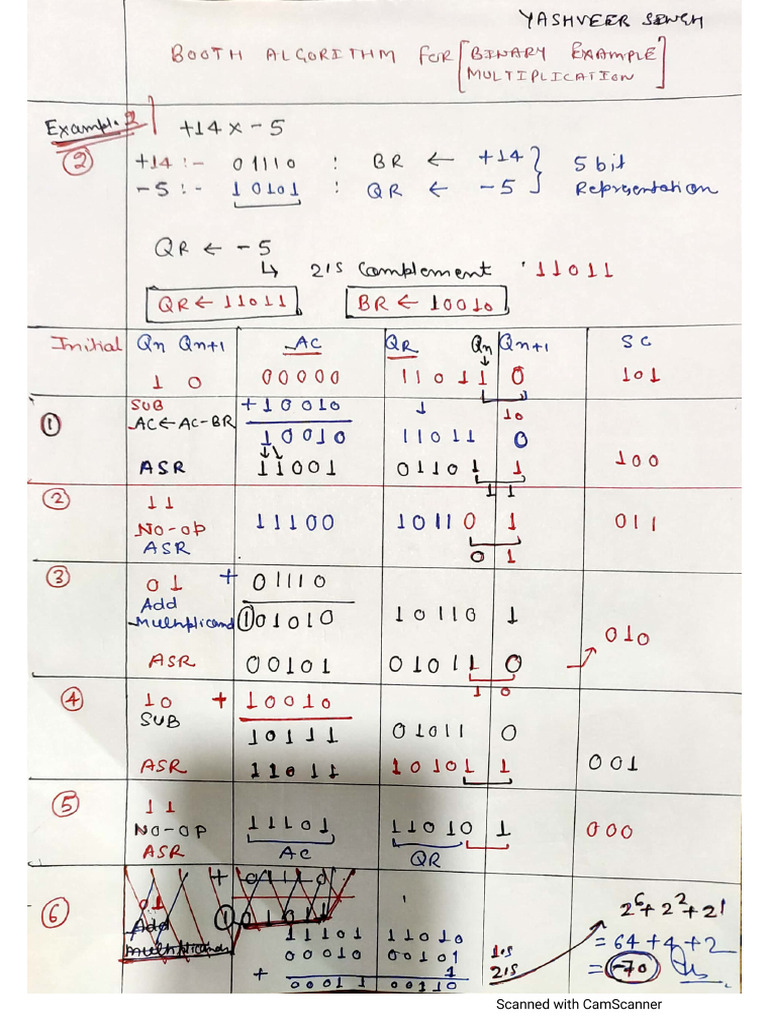 YASHVEER SINGH
BOOTH ALGORITHM FOR [BINARY EXAMPLE
MULTIPLICATION]
Example 2
② +14 x -5
+14 :- 01110 : BR ← +14 } 5 bit
-5 :- 10101 : QR ← -5 Representation
QR ← -5
↳ 2's Complement 11011
QR ← 11011 BR ← 10010
Initial Qn Qn+1 AC QR Qn Qn+1 SC
1 0 00000 11011 0 101
① SUB +10010 10
AC←AC-BR 10010 11011 0
ASR 11001 01101 1 100
1 1
② 11
No-op 11100 10110 1 011
ASR 0 1
③ 01 + 01110
Add
Multiplicand ①01010 10110 1
010
ASR 00101 01011 0
1 0
④ 10 + 10010
SUB 10111 01011 0
ASR 11011 10101 1 001
⑤ 11
NO-OP 11101 11010 1 000
ASR AC QR
⑥ + 01110
01 ① 01011
Add
Multiplicand
11101 11010
00010 00101 1's
+ 1 2's
00011 00110
2^6+2^2+2^1
= 64+4+2
= -70
Scanned with CamScanner